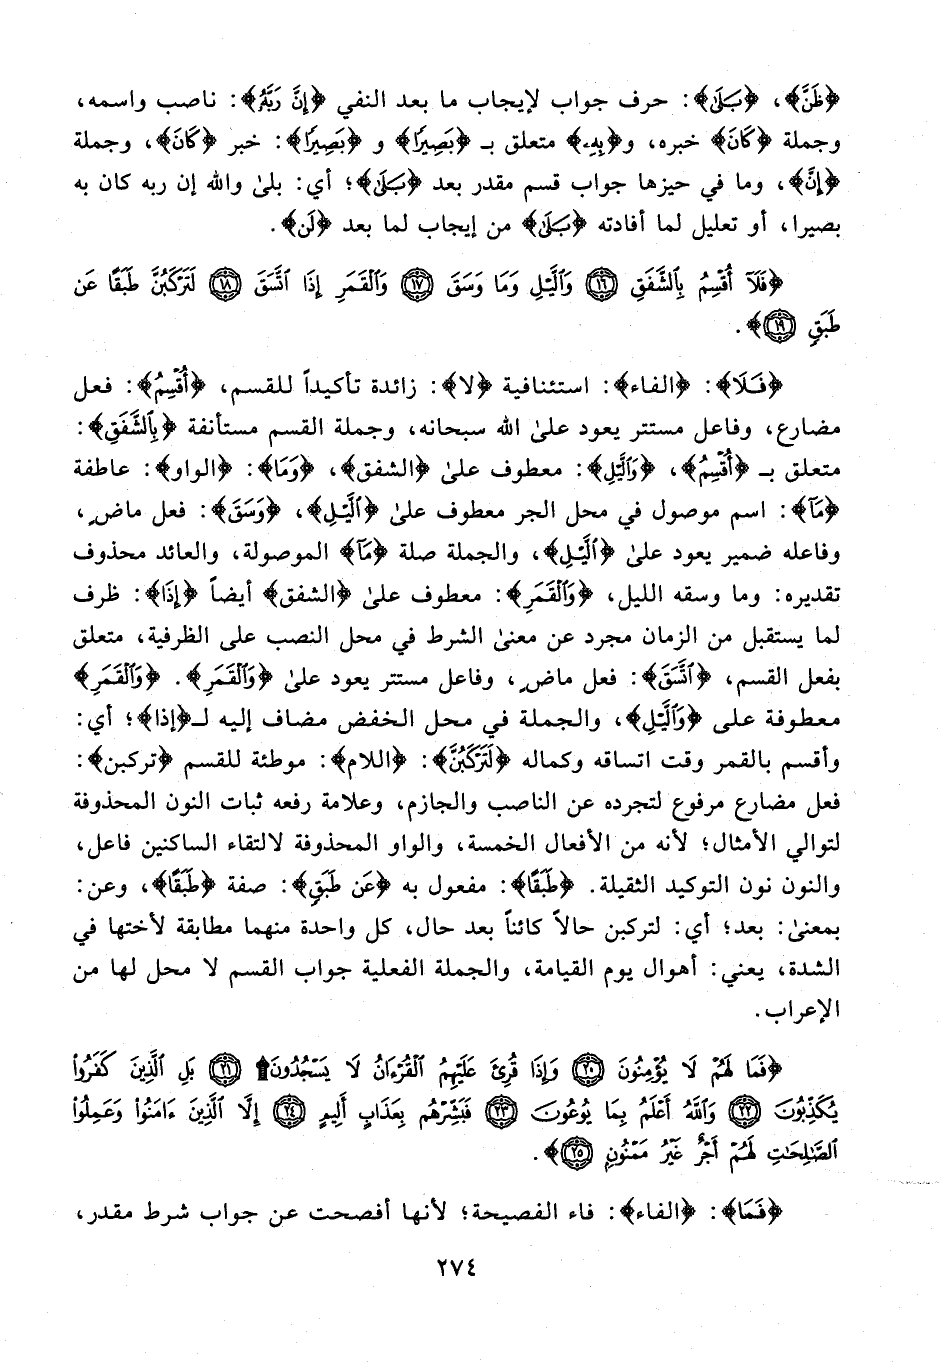 ﴿ظَنَّ﴾، ﴿بَلَىٰ﴾: حرف جواب لإيجاب ما بعد النفي ﴿إِنَّ رَبَّهُ﴾: ناصب واسمه،
وجملة ﴿كَانَ﴾ خبره، و﴿بِهِۦ﴾ متعلق بـ ﴿بَصِيرًا﴾ و ﴿بَصِيرًا﴾: خبر ﴿كَانَ﴾، وجملة
﴿إِنَّ﴾، وما في حيزها جواب قسم مقدر بعد ﴿بَلَىٰ﴾؛ أي: بلىٰ والله إن ربه كان به
بصيرا، أو تعليل لما أفادته ﴿بَلَىٰ﴾ من إيجاب لما بعد ﴿لَن﴾.
﴿فَلَآ أُقْسِمُ بِٱلشَّفَقِ ۝١٦ وَٱلَّيْلِ وَمَا وَسَقَ ۝١٧ وَٱلْقَمَرِ إِذَا ٱتَّسَقَ ۝١٨ لَتَرْكَبُنَّ طَبَقًا عَن
طَبَقٍ ۝١٩﴾.
﴿فَلَا﴾: ﴿الفاء﴾: استئنافية ﴿لا﴾: زائدة تأكيداً للقسم، ﴿أُقْسِمُ﴾: فعل
مضارع، وفاعل مستتر يعود علىٰ الله سبحانه، وجملة القسم مستأنفة ﴿بِٱلشَّفَقِ﴾:
متعلق بـ ﴿أُقْسِمُ﴾، ﴿وَٱلَّيْلِ﴾: معطوف علىٰ ﴿الشفق﴾، ﴿وَمَا﴾: ﴿الواو﴾: عاطفة
﴿مَآ﴾: اسم موصول في محل الجر معطوف علىٰ ﴿ٱلَّيْلِ﴾، ﴿وَسَقَ﴾: فعل ماضٍ،
وفاعله ضمير يعود علىٰ ﴿ٱلَّيْلِ﴾، والجملة صلة ﴿مَآ﴾ الموصولة، والعائد محذوف
تقديره: وما وسقه الليل، ﴿وَٱلْقَمَرِ﴾: معطوف علىٰ ﴿الشفق﴾ أيضاً ﴿إِذَا﴾: ظرف
لما يستقبل من الزمان مجرد عن معنىٰ الشرط في محل النصب على الظرفية، متعلق
بفعل القسم، ﴿ٱتَّسَقَ﴾: فعل ماضٍ، وفاعل مستتر يعود علىٰ ﴿وَٱلْقَمَرِ﴾. ﴿وَٱلْقَمَرِ﴾
معطوفة على ﴿وَٱلَّيْلِ﴾، والجملة في محل الخفض مضاف إليه لـ﴿إذا﴾؛ أي:
وأقسم بالقمر وقت اتساقه وكماله ﴿لَتَرْكَبُنَّ﴾: ﴿اللام﴾: موطئة للقسم ﴿تركبن﴾:
فعل مضارع مرفوع لتجرده عن الناصب والجازم، وعلامة رفعه ثبات النون المحذوفة
لتوالي الأمثال؛ لأنه من الأفعال الخمسة، والواو المحذوفة لالتقاء الساكنين فاعل،
والنون نون التوكيد الثقيلة. ﴿طَبَقًا﴾: مفعول به ﴿عَن طَبَقٍ﴾: صفة ﴿طَبَقًا﴾، وعن:
بمعنىٰ: بعد؛ أي: لتركبن حالاً كائناً بعد حال، كل واحدة منهما مطابقة لأختها في
الشدة، يعني: أهوال يوم القيامة، والجملة الفعلية جواب القسم لا محل لها من
الإعراب.
﴿فَمَا لَهُمْ لَا يُؤْمِنُونَ ۝٢٠ وَإِذَا قُرِئَ عَلَيْهِمُ ٱلْقُرْءَانُ لَا يَسْجُدُونَ ۩ ۝٢١ بَلِ ٱلَّذِينَ كَفَرُوا۟
يُكَذِّبُونَ ۝٢٢ وَٱللَّهُ أَعْلَمُ بِمَا يُوعُونَ ۝٢٣ فَبَشِّرْهُم بِعَذَابٍ أَلِيمٍ ۝٢٤ إِلَّا ٱلَّذِينَ ءَامَنُوا۟ وَعَمِلُوا۟
ٱلصَّٰلِحَٰتِ لَهُمْ أَجْرٌ غَيْرُ مَمْنُونٍ ۝٢٥﴾.
﴿فَمَا﴾: ﴿الفاء﴾: فاء الفصيحة؛ لأنها أفصحت عن جواب شرط مقدر،
٢٧٤